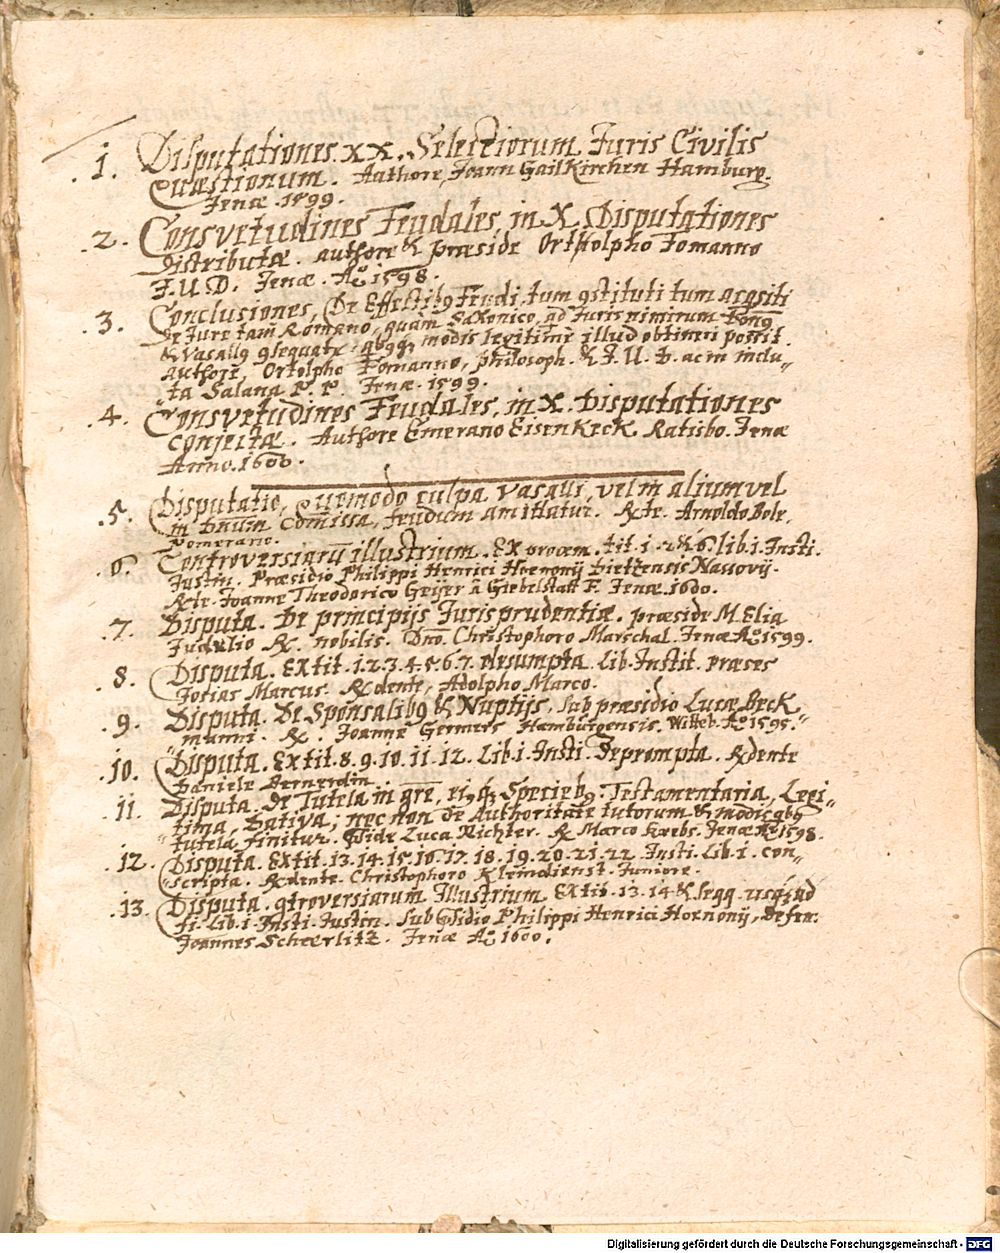 .1. Disputationes XX. Selectiorum Juris Civilis
Quæstionum. Authore Joann Gailkirchen Hamburg.
Jenæ. 1599.
.2. Consvetudines Feudales, in X. Disputationes
Distributæ. authore & præside Ortholpho Fomanno
J.U.D. Jenæ. Aº 1598.
.3. Conclusiones, De Effectibꝰ Feudi, tum ꝯstituti tum acqsiti
De Jure tam Romano, quàm Saxonico, ad Juris nimirum
& Vasallꝰ ꝯsequatr: abꝰqꝫ modis legitimè illud obtineri possit.
Authore, Ortolpho Fomanno, philosoph. & J. U. D. ac in inclu„
„ta Salana P. P. Jenæ. 1599.
.4. Consvetudines Feudales, in X. Disputationes
Conjectæ. Authore Emerano Eisenkeck. Ratisbo. Jenæ
Anno. 1600.
.5. Disputatio, Quemodo culpa Vasalli, vel in alium vel
in Dnum Comissa, feudum amittatur. Rte. Arnoldo Bole,
Pomerano.
.6. Controversiarū illustrium. Ex procem. tit. 1. 2 & 6. lib. 1. Insti.
Justin. Præsidio Philippi Henrici Hoenonij Dietzensis Nassovij.
Rte. Joanne Theodorico Geijer â Giebelstatt F. Jenæ. 1600.
.7. Disputa. De principijs Jurisprudentiæ. præside M. Elia
Judulio R. nobilis. Dnō. Christophoro Marschal. Jenæ Aº 1599.
.8. Disputa. Ex tit. 1. 2. 3. 4. 5. 6. 7. desumpta. Lib. Instit. præses
Josias Marcus. Rdente, Adolpho Marco.
.9. Disputa. De Sponsalibꝰ & Nuptijs, sub præsidio Lucæ Beck„
„manni. R. Joanne Germers Hamburgensis. Witteb. Aº 1595.
.10. Disputa. Ex tit. 8. 9. 10. 11. 12. Lib. 1. Insti. Deprompta. Rdente
Daniele Bernerdin.
.11. Disputa. De Tutela in gre, eiꝰqꝫ Speciebꝰ: Testamentaria, Legi„
„tima, Dativa; nec non de Authoritate tutorum & modis qbꝰ
tutela finitur. Luca Richter. R. Marco Krebs. Jenæ Aº 1598.
.12. Disputa. Ex tit. 13. 14. 15. 16. 17. 18. 19. 20. 21. 22. Insti. Lib. 1. con„
„scripta. Rdente. Christophoro Kleindienst. Juniore.
.13. Disputa. ꝯtroversiarum Illustrium. Ex tit. 13. 14 & seqq. usqꝫ ad
fi. Lib. 1. Insti. Justin. Sub Philippi Henrici Hoenonij, Defen:
Joannes Scheerlitz. Jenæ Aº 1600.
Digitalisierung gefördert durch die Deutsche Forschungsgemeinschaft - DFG